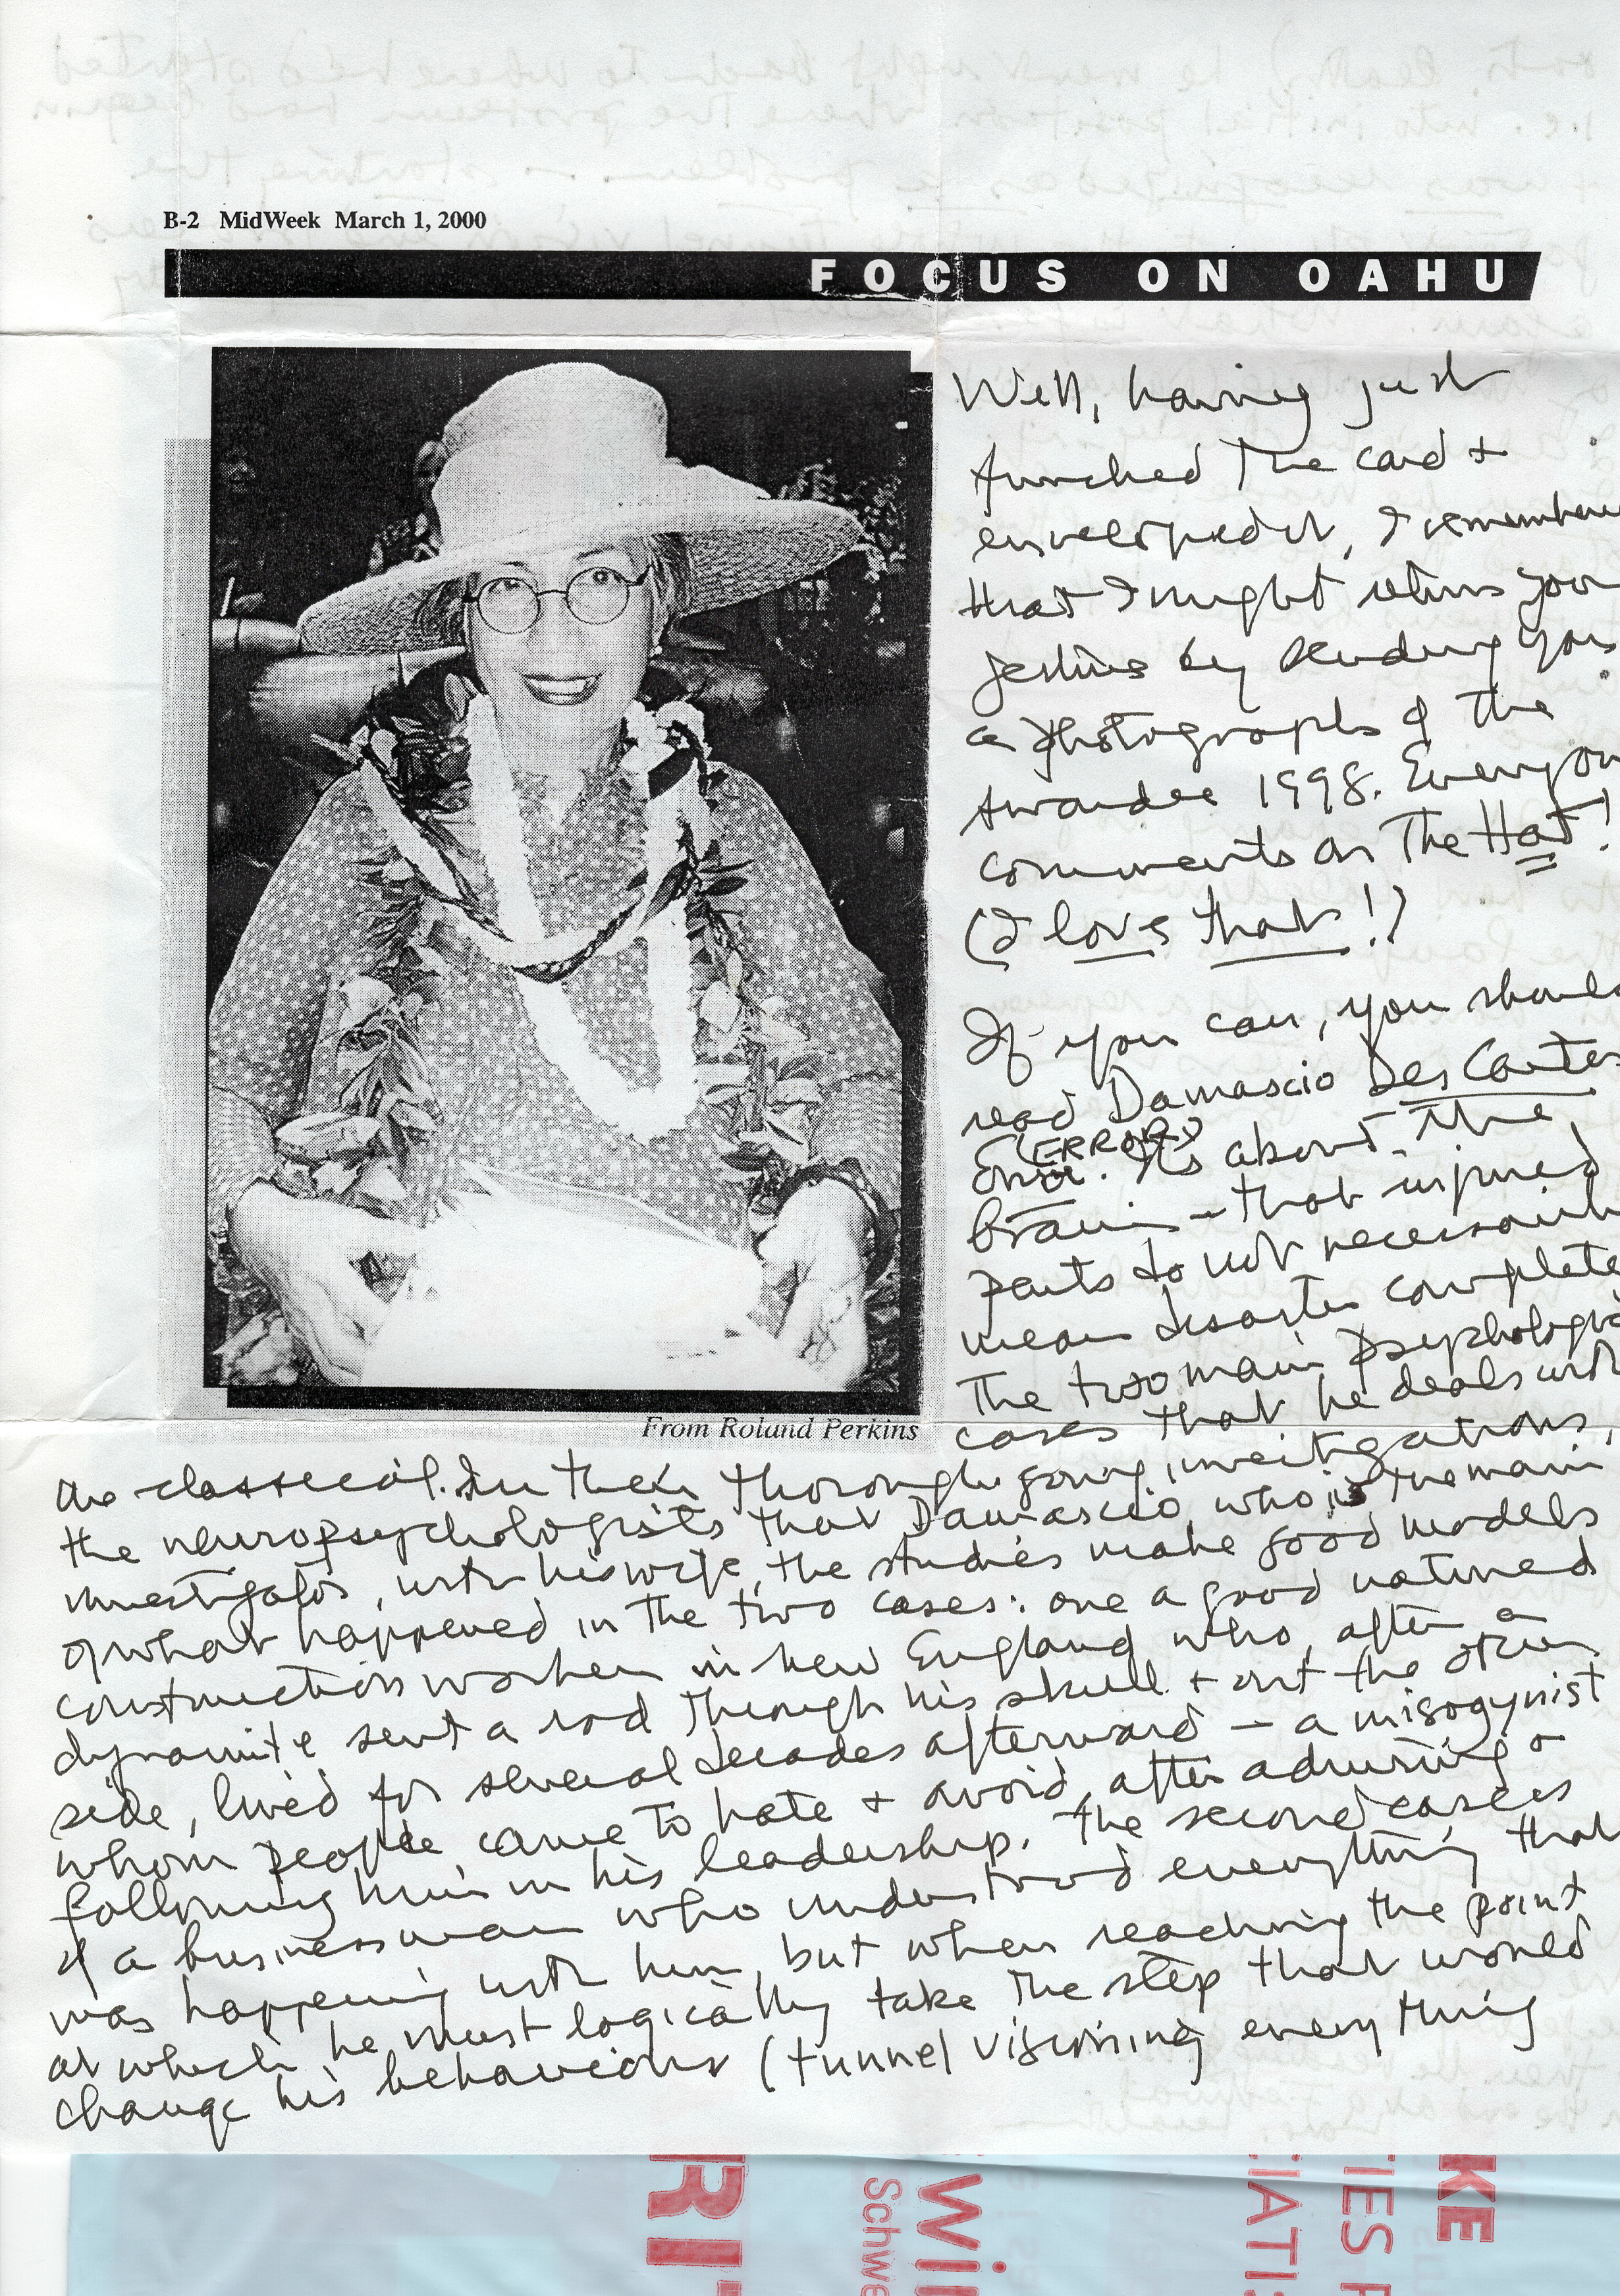 B-2 MidWeek March 1, 2000
FOCUS ON OAHU
Well, having just
the card +
enveloped it, I remembered
that I might return your
by sending you
a photograph of the
Awardee 1998. Everyon
comments on The Hat!
(I love that!)
If you can, you should
read Damascio Des Cartes
(ERROR) It's about the
brain - that injured
parts do not necessarily
mean disaster complete
The two main psychologic
cases that he deals with
From Roland Perkins
are classical. In their thorough going investigations,
the neuropsychologists that Damascio, who is the main
investigator, with his wife, the studies make good models
of what happened in the two cases: one a good natured
construction worker in New England who, after a
dynamite sent a rod through his skull + out the other
side, lived for several decades afterward - a misogynist
whom people came to hate + avoid, after admiring +
following him in his leadership. The second case is
of a businessman who understood everything that
was happening with him, but when reaching the point
at which he must logically take the step that would
change his behaviour (tunnel visioning everything
RI-
Schwe
Wil
IATI
TIES F
KE